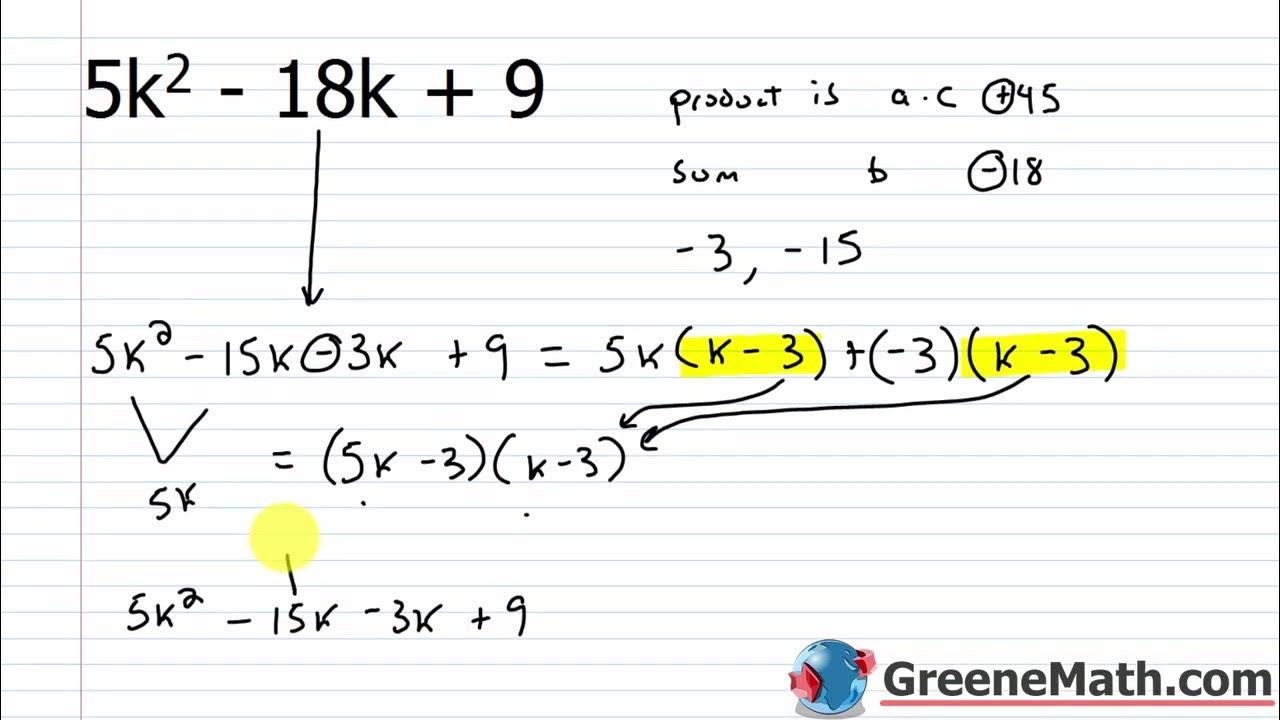 5k² - 18k + 9
product is a·c ⊕45
sum b ⊖18
-3, -15
5k² - 15k ⊖ 3k + 9 = 5k(k - 3) + (-3)(k - 3)
= (5k - 3)(k - 3)
5k
5k² - 15k - 3k + 9
GreeneMath.com